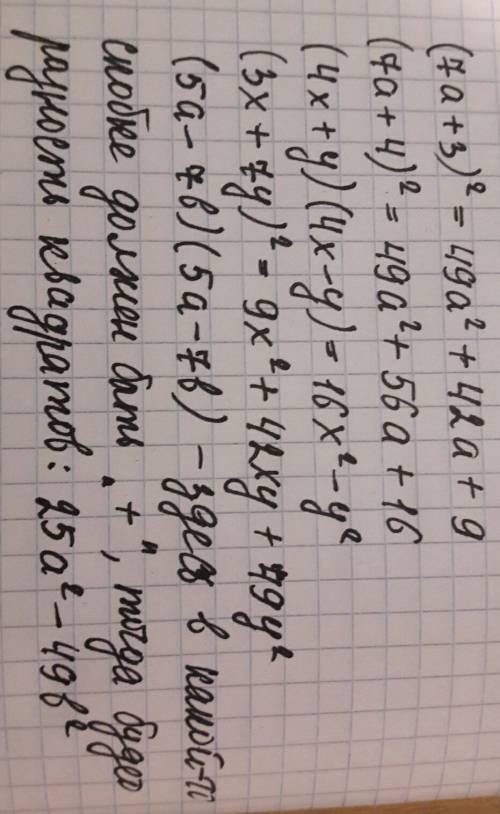 (7a+3)² = 49a² + 42a + 9
(7a+4)² = 49a² + 56a + 16
(4x+y)(4x-y) = 16x² - y²
(3x+7y)² = 9x² + 42xy + 49y²
(5a-7в)(5a-7в) - здесь в какой-то
скобке должен быть „+", тогда будет
разность квадратов: 25a² - 49в²